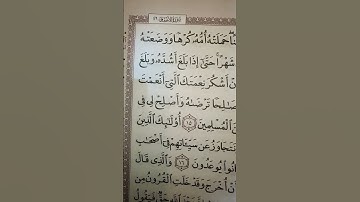 حَمَلَتْهُ أُمُّهُۥ كُرْهًا وَوَضَعَتْهُ
شَهْرًا حَتَّىٰٓ إِذَا بَلَغَ أَشُدَّهُۥ وَبَلَغَ
أَنْ أَشْكُرَ نِعْمَتَكَ ٱلَّتِىٓ أَنْعَمْتَ
صَٰلِحًا تَرْضَىٰهُ وَأَصْلِحْ لِى فِى
ٱلْمُسْلِمِينَ ١٥ أُو۟لَٰٓئِكَ ٱلَّذِينَ
نَتَجَاوَزُ عَن سَيِّـَٔاتِهِمْ فِىٓ أَصْحَٰبِ
انُوا۟ يُوعَدُونَ ١٦ وَٱلَّذِى قَالَ
نْ أُخْرَجَ وَقَدْ خَلَتِ ٱلْقُرُونُ مِن
ٱللَّهِ حَقٌّ فَيَقُولُ